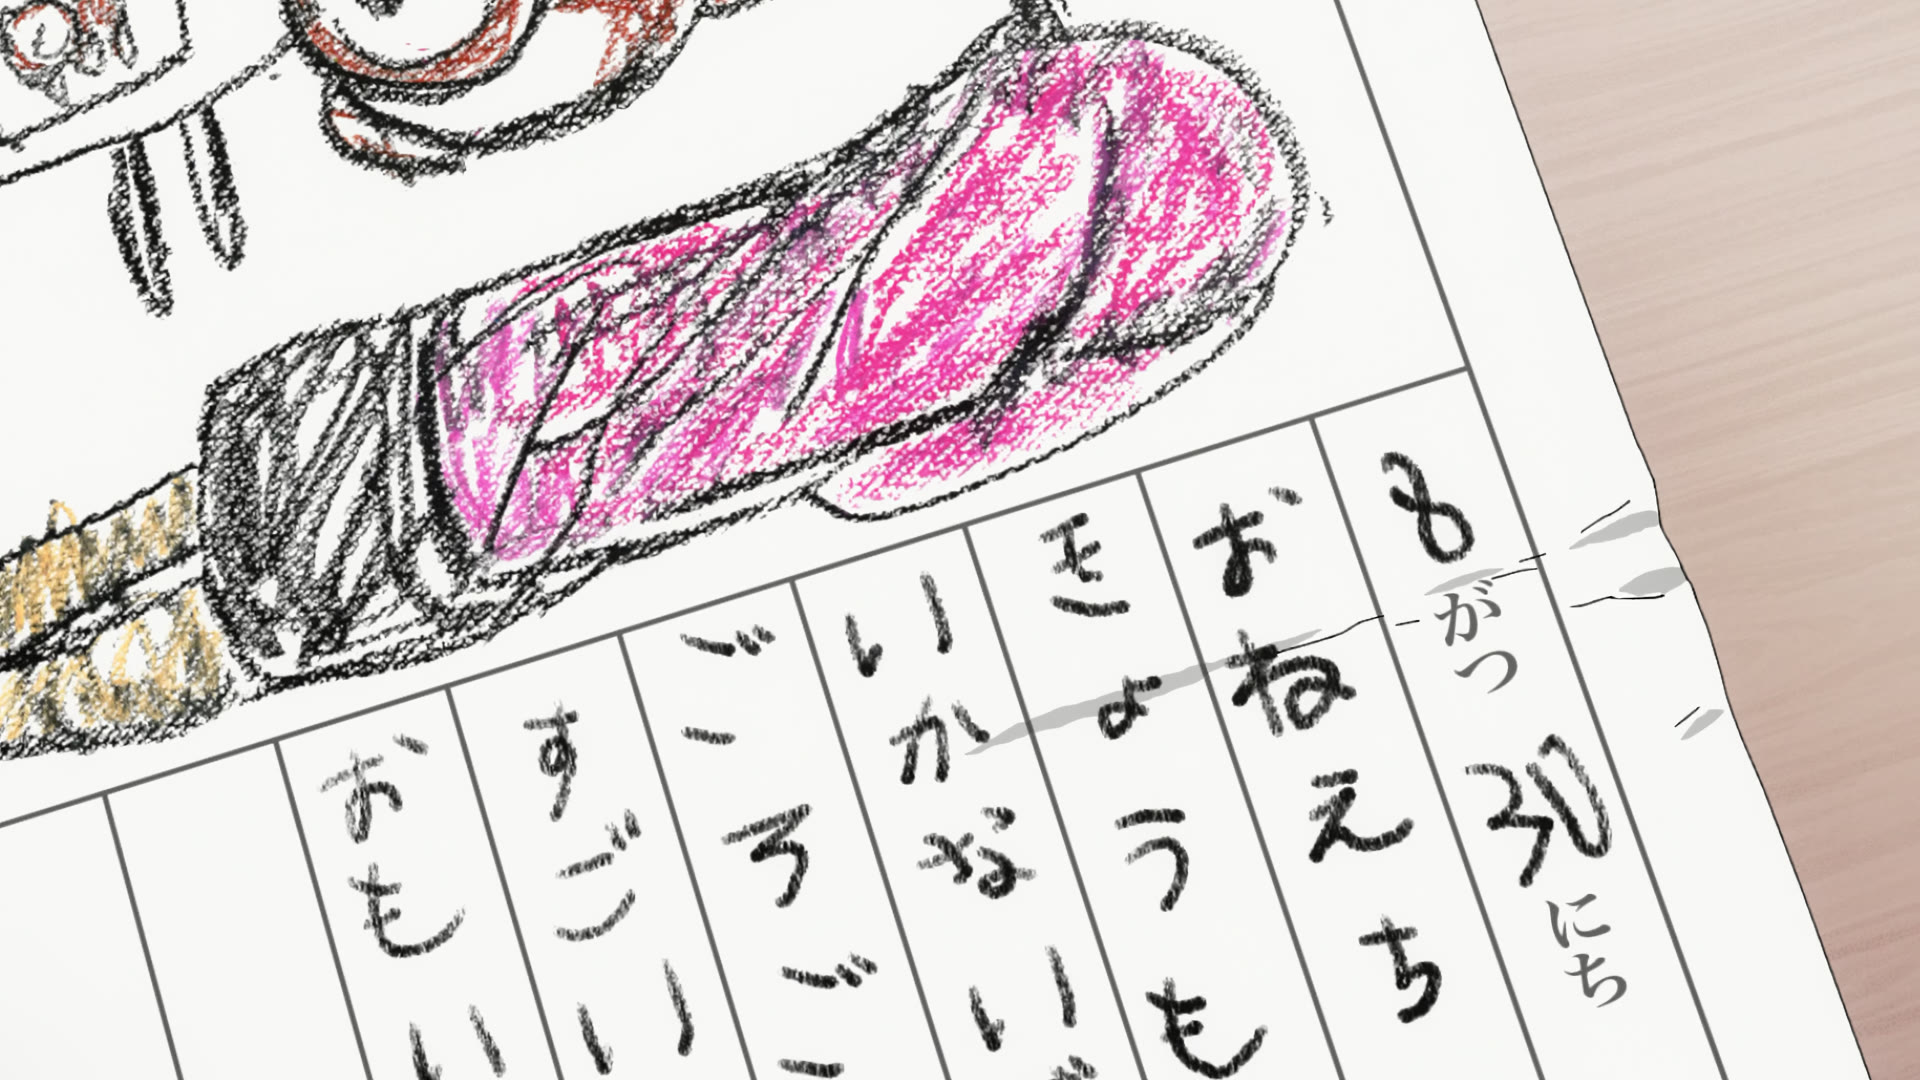 8がつ30にち
おねえち
きょうも
いかない
ごろご
すごい
おもい